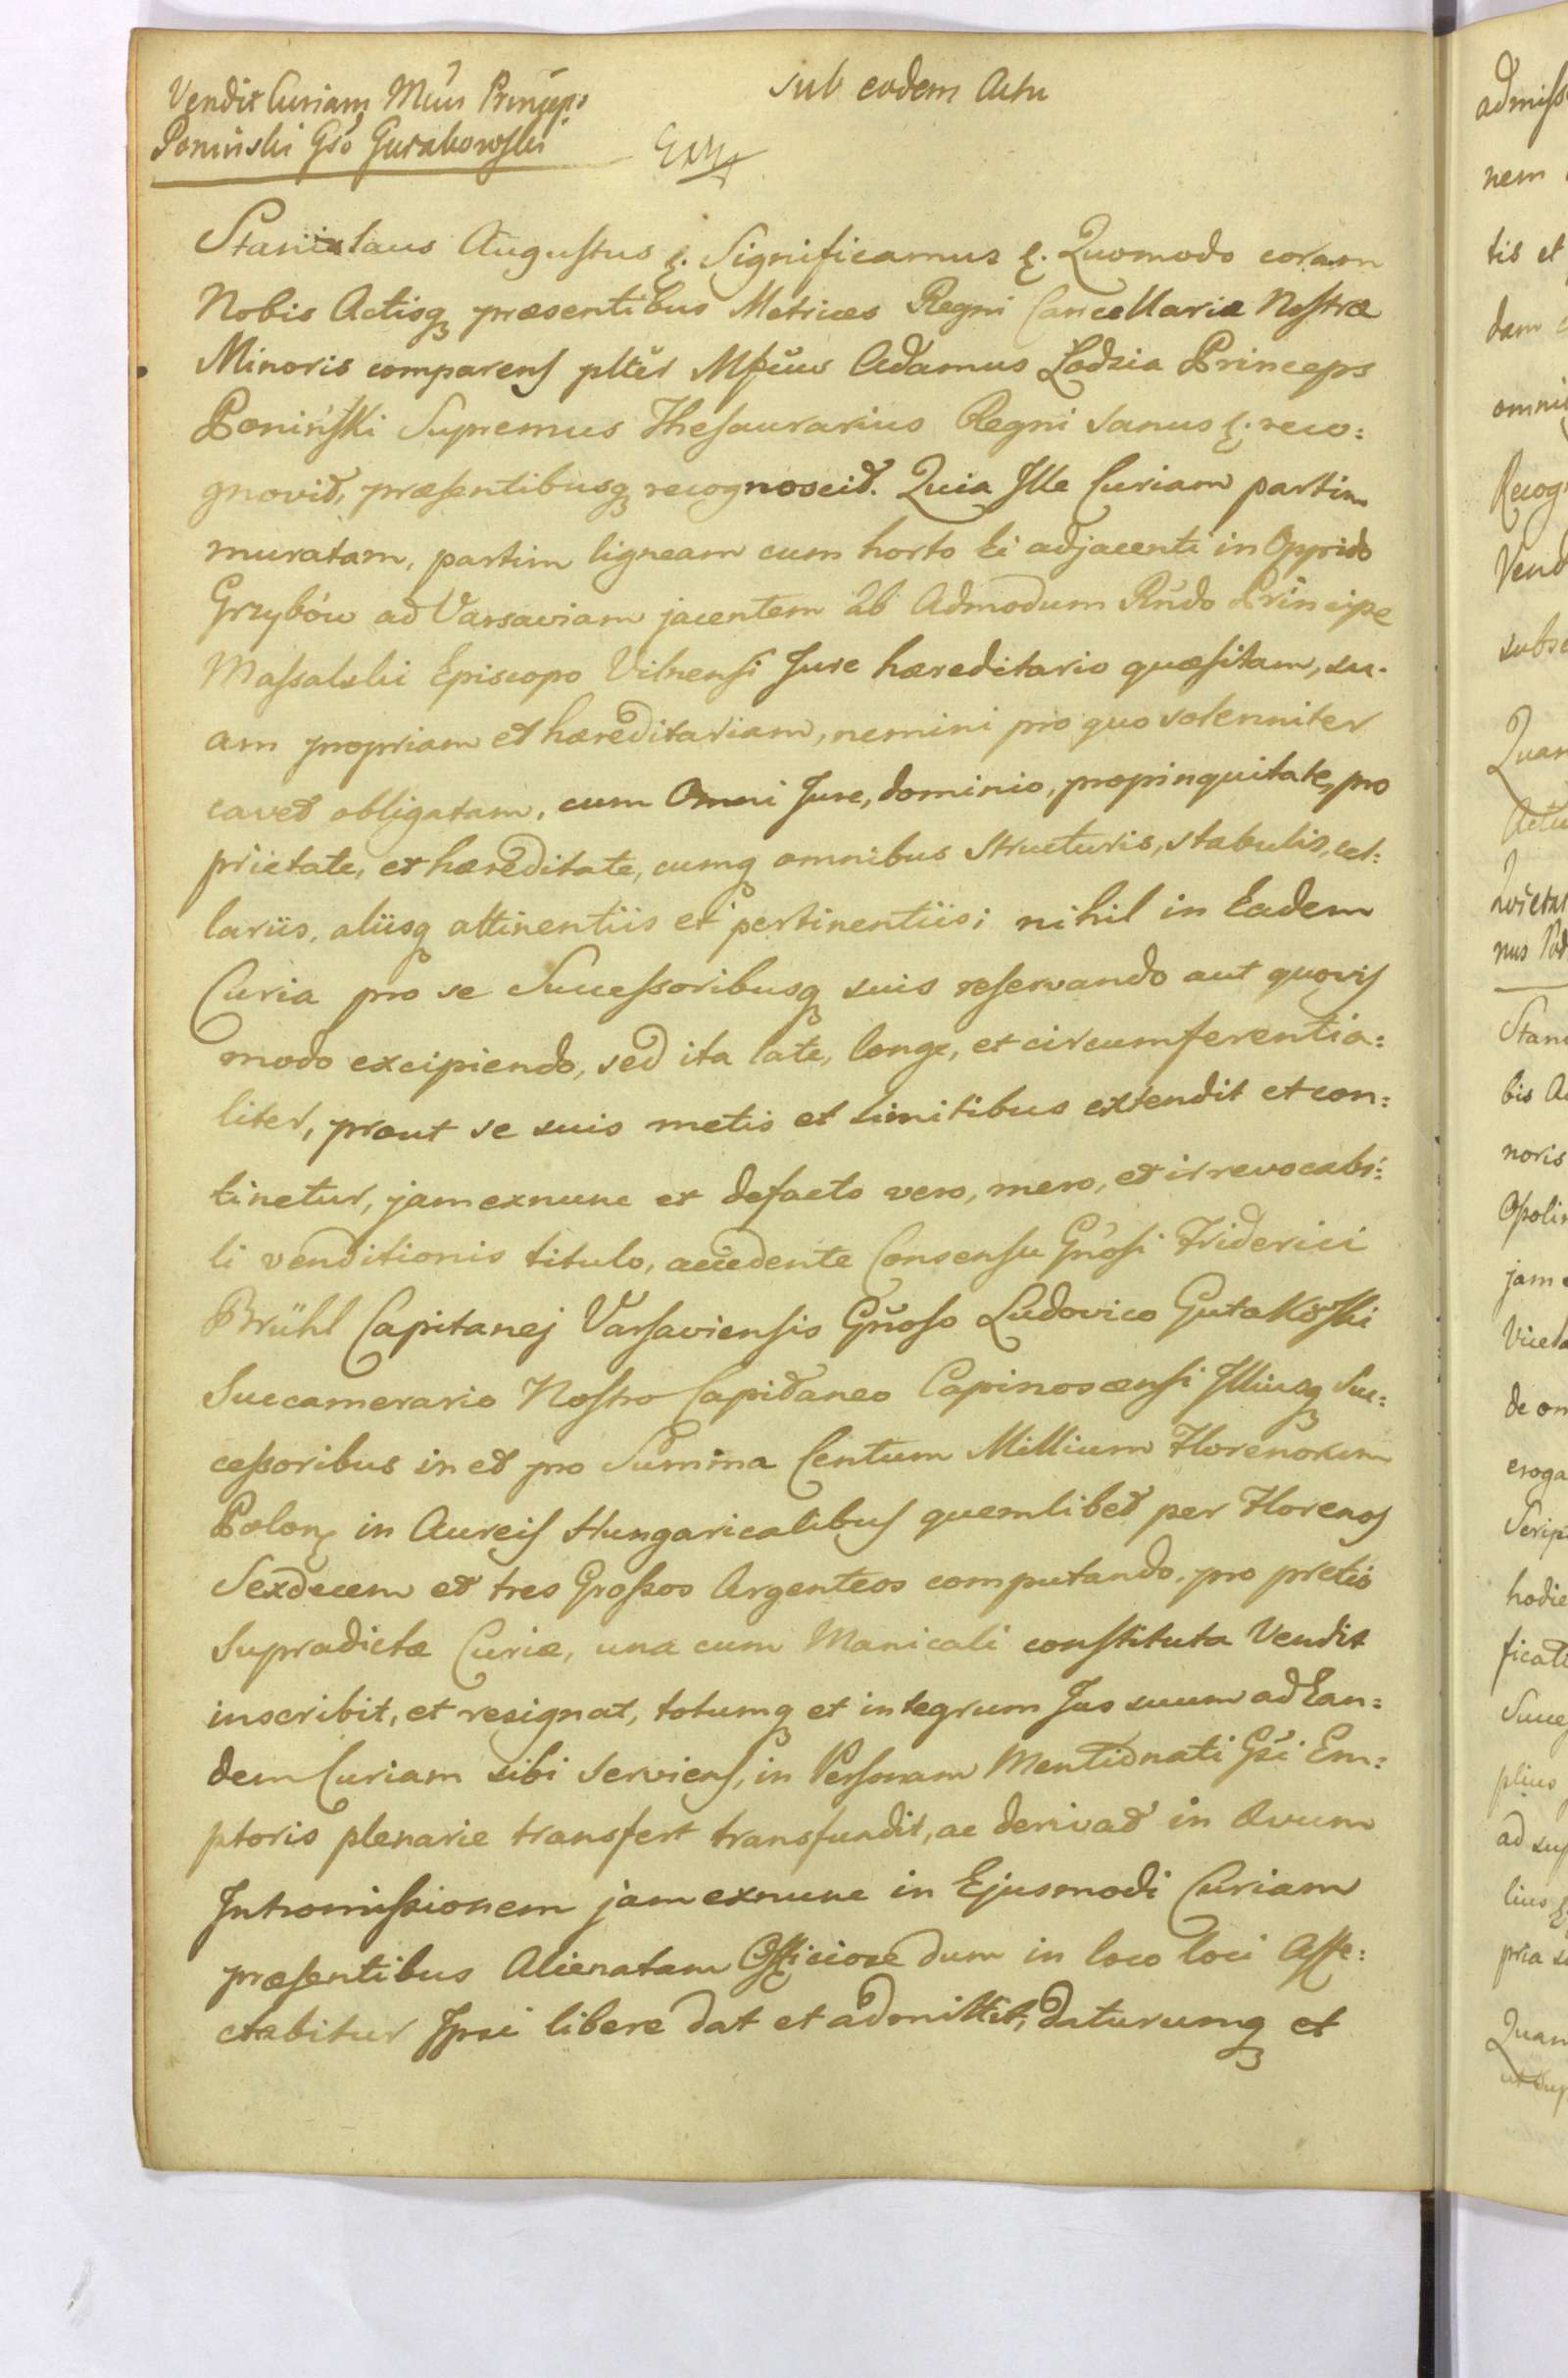 Vendit Curiam Mcus Princeps
sub eodem Actu
Poninski Gso Gurakowski
Stanislaus Augustus &. Significamus &. Quomodo coram
Nobis Actisq præsentibus Metrices Regni Cancellariæ Nostræ
Minoris comparens plter Mfcus Adamus Lodzia Princeps
Poniński Supremus Thesaurarius Regni sanus &. reco:
gnovit, præsentibusq recognoscit. Quia Ille Curiam partim
muratam, partim ligneam cum horto Ei adjacenti in Oppido
Grzybów ad Varsaviam jacentem ab Admodum Rndo Principe
Massalski Episcopo Vilnensi Jure hæreditario quæsitam, su-
am propriam et hæreditariam, nemini pro quo solenniter
cavet obligatam, cum Omni Jure, dominio, propinquitate, pro
prietate, et hæreditate, cumq omnibus structuris, stabulis, cel:
lariis, aliisq attinentiis et pertinentiis; nihil in Eadem
Curia pro se Successoribusq suis reservando aut quovis
modo excipiendo, sed ita late, longe, et circumferentia:
liter, prout se suis metis et limitibus extendit et con:
tinetur, jam exnunc et defacto vero, mero, et irrevocabi:
li venditionis titulo, accedente Consensu Gnosi Friderici
Brühl Capitanej Varsaviensis Gnoso Ludovico Gutakowski
Succamerario Nostro Capitaneo Capinoscensi Illiusq Suc:
cessoribus in et pro Summa Centum Millium Florenorum
Polon in Aureis Hungaricalibus quemlibet per Florenos
Sexdecem et tres Grossos Argenteos computando, pro pretio
supradictæ Curiæ, una cum Manicali constituta Vendit
inscribit, et resignat, totumq et integrum Jus suum ad Ean:
dem Curiam sibi serviens, in Personam Mentionati Gsi Em:
ptoris plenarie transfert transfundit, ac derivat in Ævum
Intromissionem jam exnunc in Ejusmodi Curiam
præsentibus Alienatam Officiose dum in loco loci Affe:
ctabitur Ipsi libere dat et admittit, daturumq et